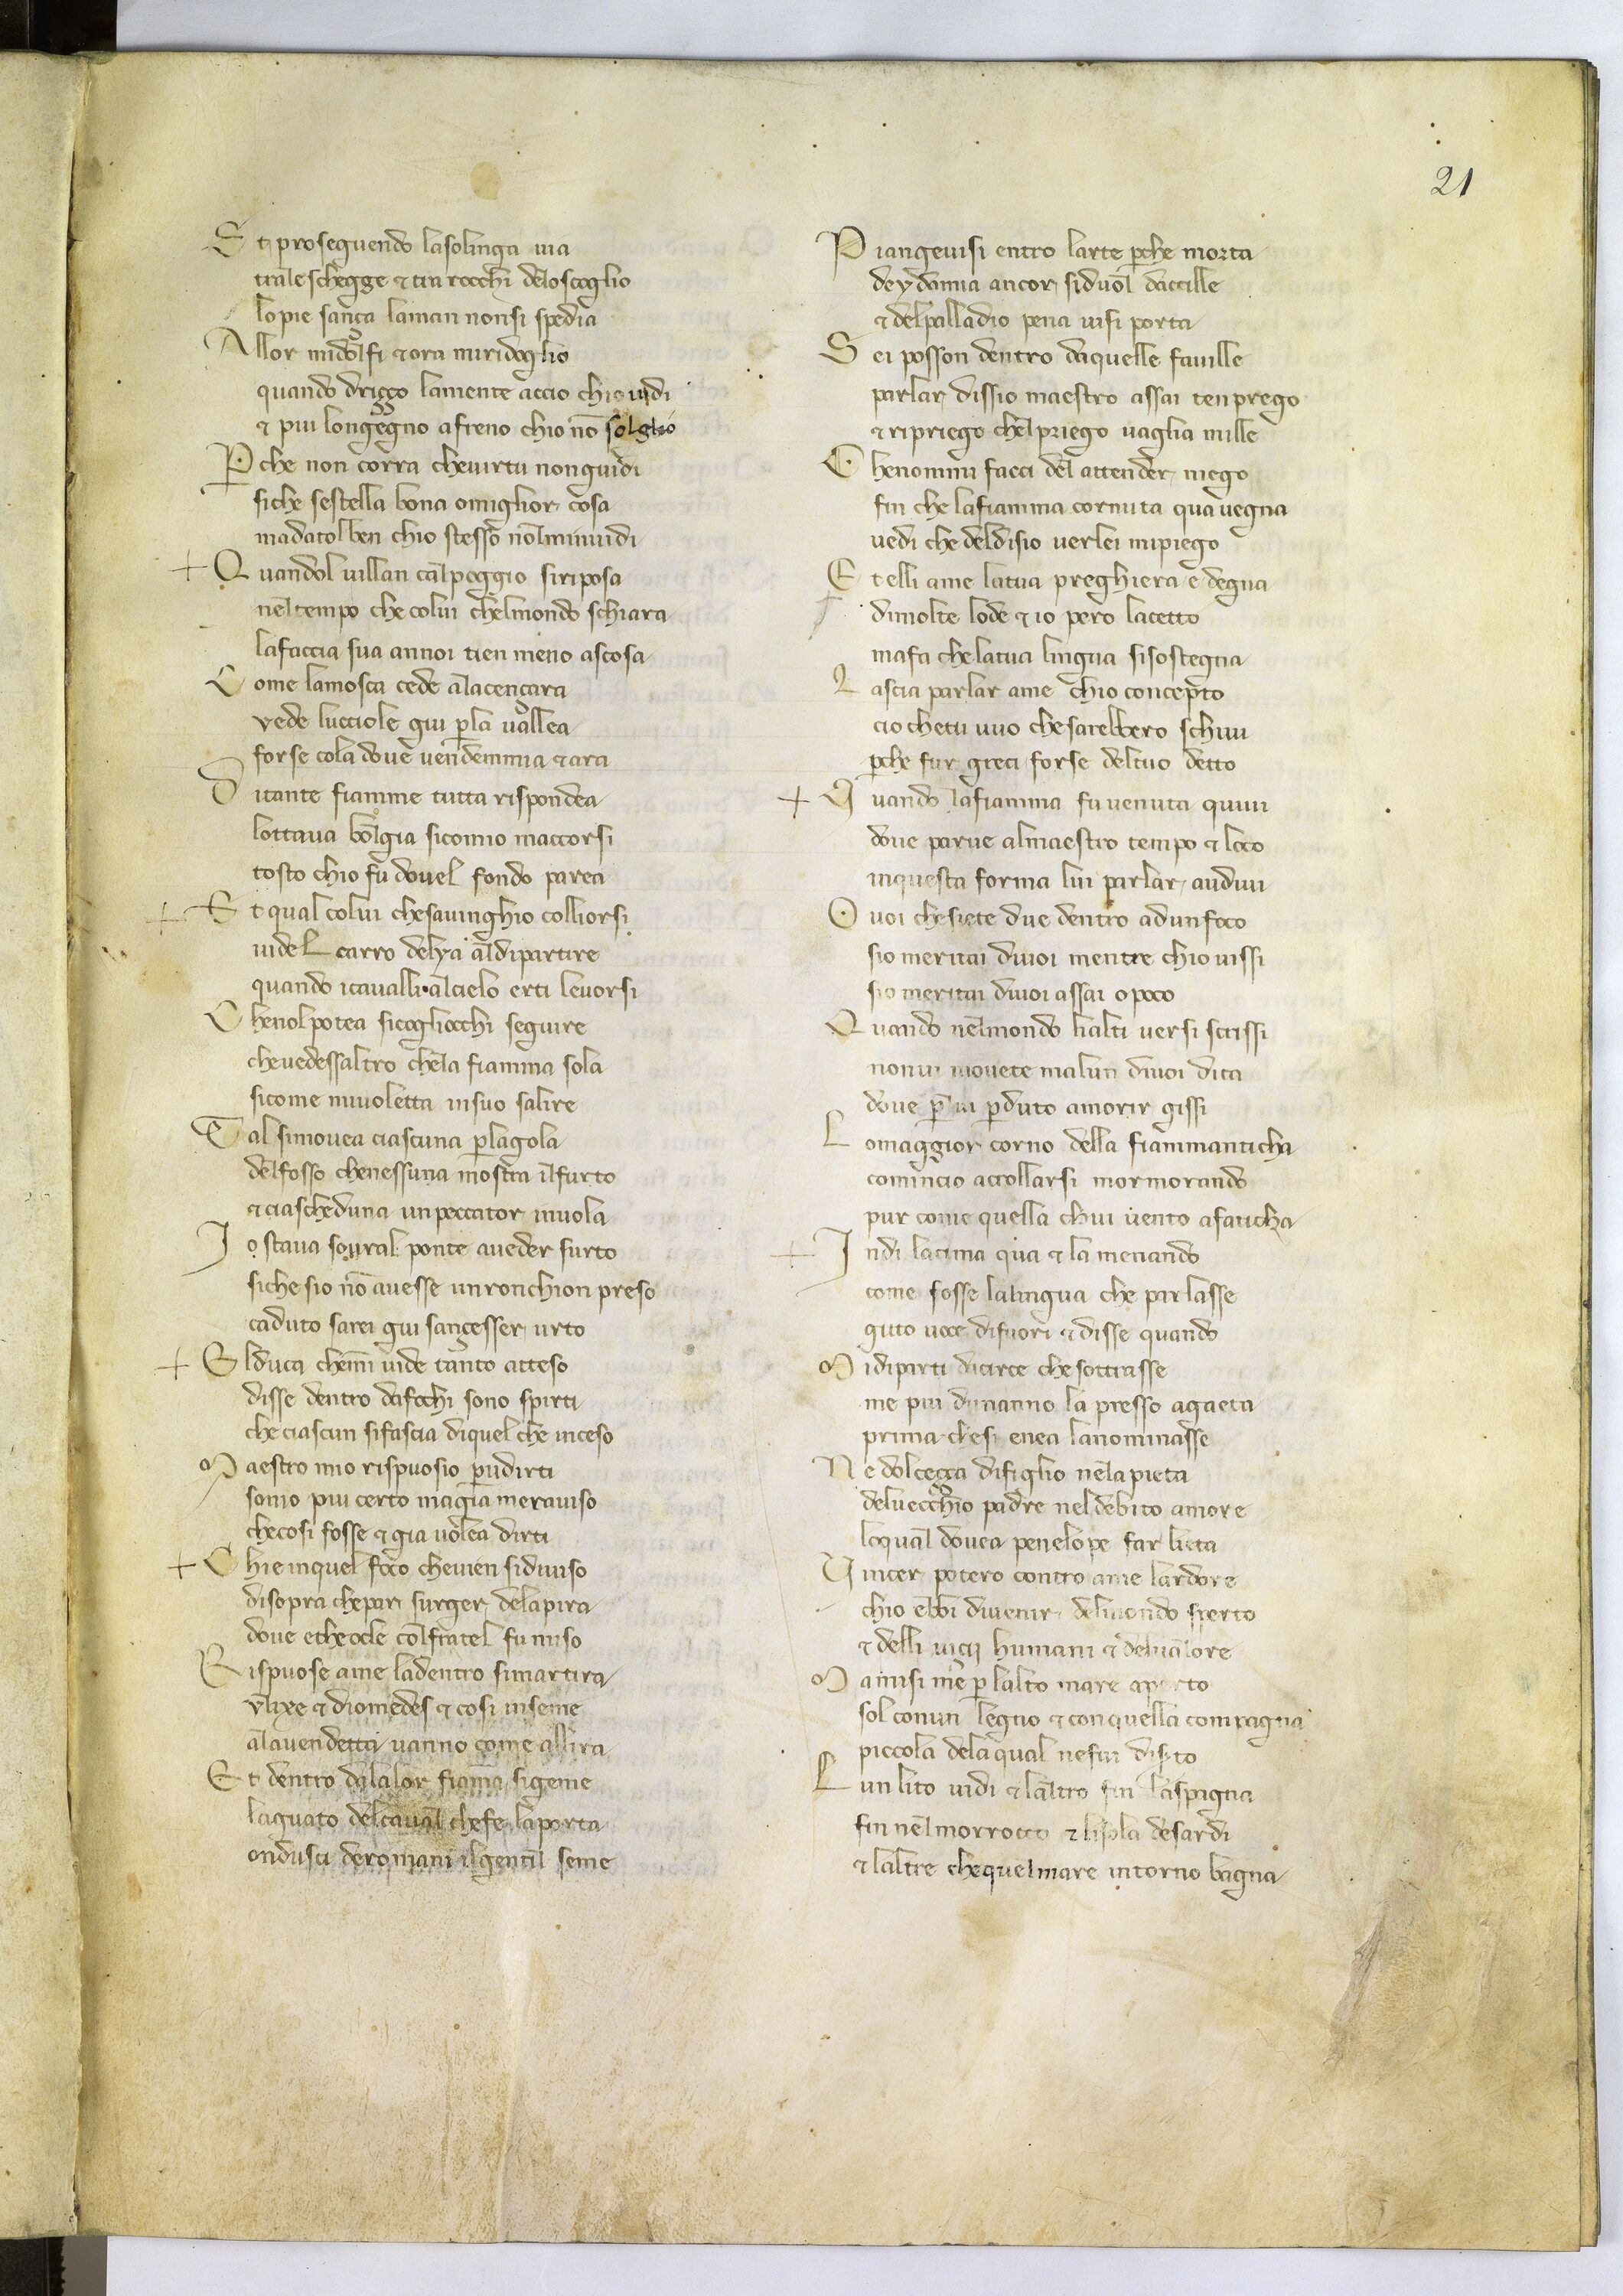 21
Et proseguendo lasolinga uia
traleschegge & tra rocchi deloscoglio
lopie sança laman nonsi spedia
Allor midolsi & ora miridoglio
quando driçço lamente accio chio uidi
& piu longegno afreno chio nō solglio
Pche non corra cheuirtu nonguidi
siche sestella bona omiglior cosa
madatolben chio stesso nolminuidi
Quandol uillan calpoggio siriposa
neltempo che colui chelmondo schiara
lafaccia sua annoi tien meno ascosa
Come lamosca cede alacençara
vede lucciole giu pla uallea
forse cola doue uendemmia & ara
Ditante fiamme tutta rispondea
lottaua bolgia sicomio maccorsi
tosto chio fu douel fondo parea
Et qual colui chesauinghio colliorsi
uidel carro delya aldipartire
quando icaualli alcielo erti leuorsi
Chenolpotea sicogliocchi seguire
cheuedessaltro chela fiamma sola
sicome nuuoletta insuo salire
Tal simouea ciascuna plagola
delfosso chenessuna mostra ilfurto
& ciascheduna unpeccator inuola
Io staua soural ponte aueder surto
siche sio nō auesse unronchion preso
caduto sarei giu sançesser urto
Elduca chemi uide tanto atteso
disse dentro dafochi sono spirti
che ciascun sifascia diquel che inceso
Maestro mio rispuosio pudirti
sonio piu certo magia merauiso
checosi fosse & gia uolea dirti
Chie inquel foco cheuien sidiuiso
disopra chepar surger delapira
doue etheocle colfratel fu miso
Rispuose ame ladentro simartira
vlixe & diomedes & cosi inseme
alauendetta uanno come allira
Et dentro dalalor fiama sigeme
laguato delcaual chefe laporta
ondusci deromani ilgentil seme
Piangeuisi entro larte pche morta
deydamia ancor siduol dacille
& delpalladio pena uisi porta
Sei posson dentro daquelle fauille
parlar dissio maestro assai tenprego
& ripriego chelpriego uaglia mille
Chenommi facci del attender niego
fin che lafiamma cornuta qua uegna
uedi che deldisio uerlei mipiego
Et elli ame latua preghiera e degna
dimolte lode & io pero lacetto
mafa chelatua lingua sisostegna
Lascia parlar ame chio concepto
cio chetu uuo chesarebbero schiui
pche fur greci forse deltuo detto
Quando lafiamma fu uenuta quiui
doue parue almaestro tempo & loco
inquesta forma lui parlar audiui
O uoi chesiete due dentro adunfoco
sio meritai diuoi mentre chio uissi
sio meritai diuoi assai opoco
Quando nelmondo lialti uersi scrissi
nonui mouete malun diuoi dica
doue p lui pduto amorir gissi
Lomaggior corno della fiammanticha
comincio acrollarsi mormorando
pur come quella chui uento afaticha
Indi lacima qua & la menando
come fosse lalingua che parlasse
gitto uoce difuori & disse quando
Midiparti dacirce che sottrasse
me piu dunanno la presso agaeta
prima chesi enea lanominasse
Ne dolceçça difiglio nelapieta
deluecchio padre nel debito amore
loqual douea penelope far lieta
Vincer potero contro ame lardore
chio ebbi diuenir delmondo sperto
& delli uicij humani & deluалore
Mamisi me p lalto mare aperto
sol conun legno & conquella compagna
piccola delaqual nefui diserto
Lun lito uidi & laltro fin laspagna
fin nelmorrocco & lisola desardi
& laltre chequelmare intorno bagna